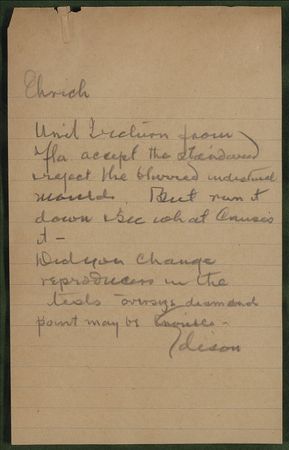 Ehrich
Until I return from
Fla. accept the standard
& reject the blurred individual
moulds. But run it
down & see what causes
it —
Did you change
reproducers in the
tests - oversize diamond
point may be
Edison